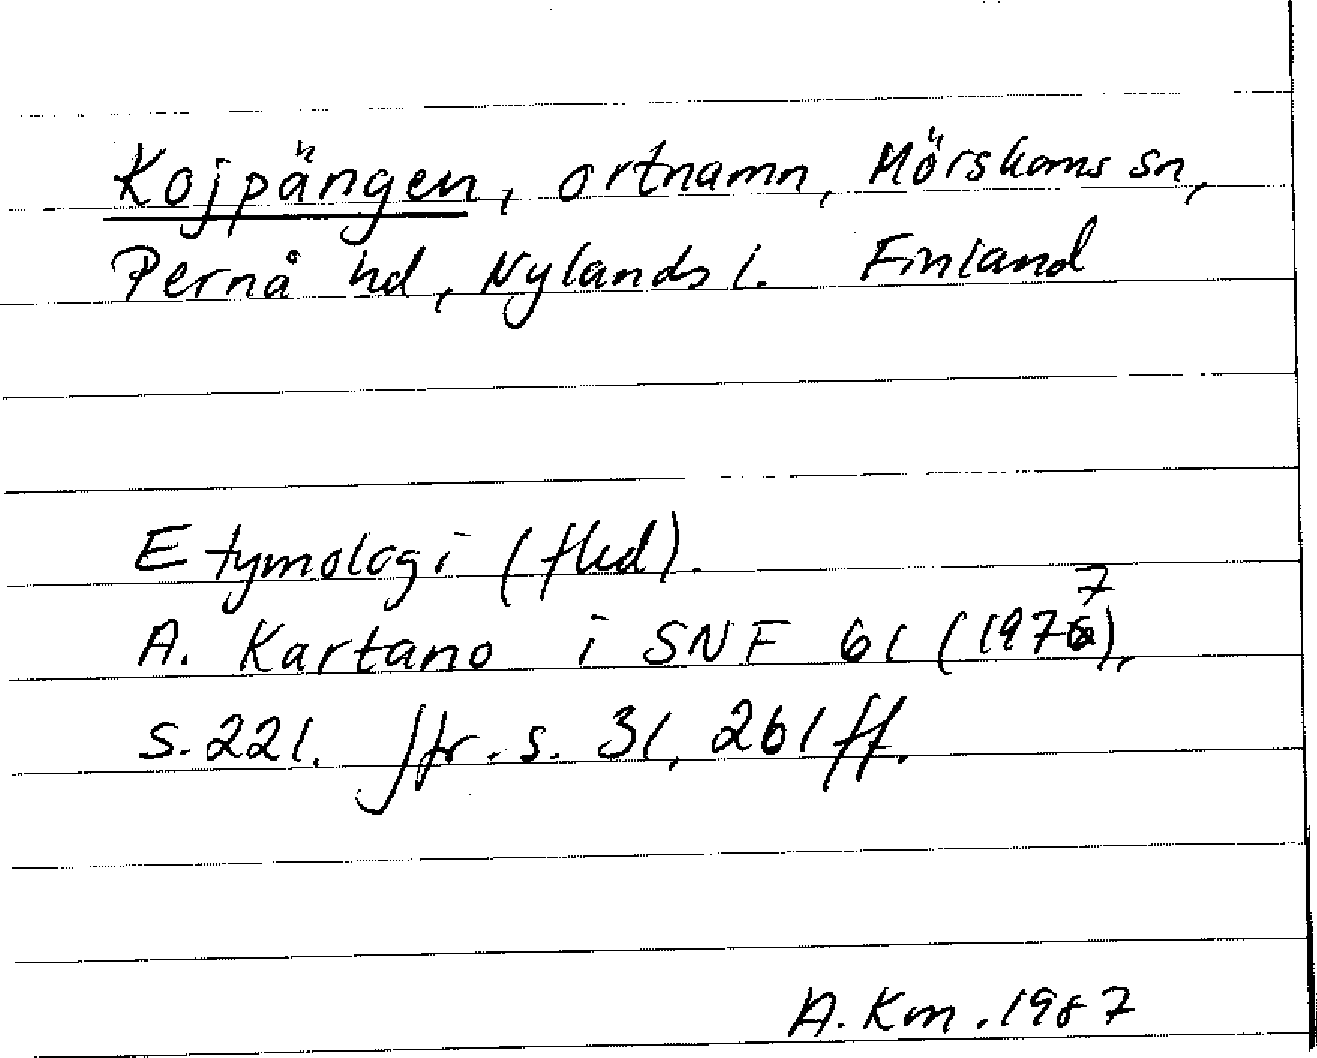 Kojpängen, ortnamn, Mörskoms sn,
Pernå hd, Nylands l. Finland
Etymologi (fled).
A. Kartano i SNF 61 (1977),
s. 221. Jfr. s. 31, 261 ff.
A. Km. 1987